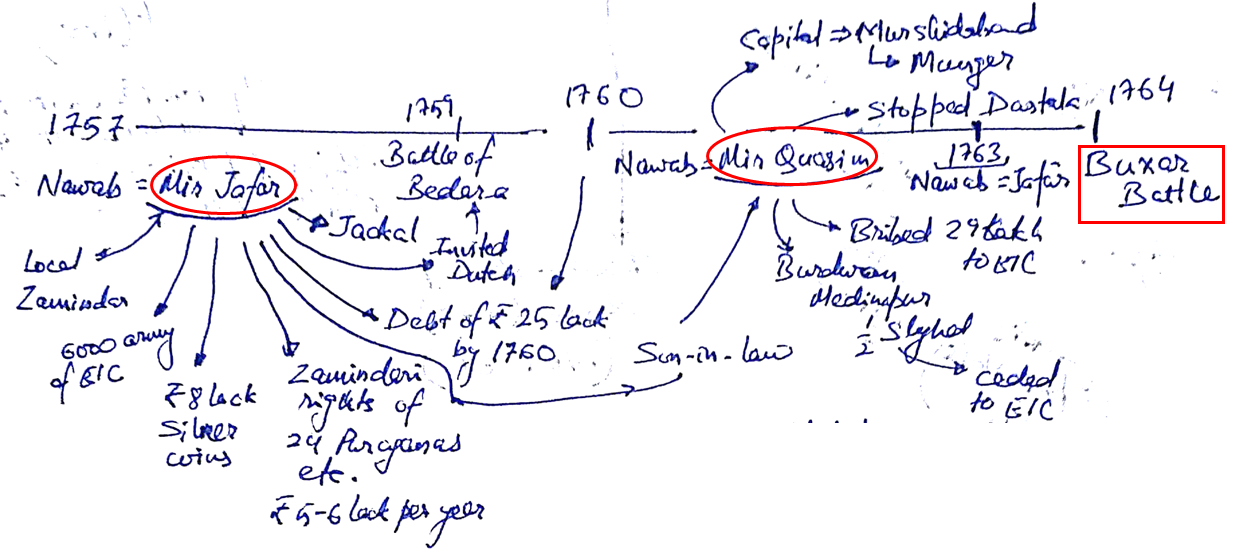 Capital ⇒ Murshidabad
↳ Munger
1757
1759
1760
Stopped Dastak
1764
Battle of
Bedara
Nawab = Mir Jafar
Nawab = Mir Quasim
1763
Nawab = Jafar
Buxar
Battle
Local
Zamindar
Jackal
Invited
Dutch
Bribed 29 lakh
to EIC
Burdwan
Medinapur
1/2 Sylhet
ceded
to EIC
6000 army
of EIC
₹8 lack
Silver
coins
Zaminderi
rights of
24 Parganas
etc.
₹5-6 lack per year
Debt of ₹25 lack
by 1760
Son-in-law